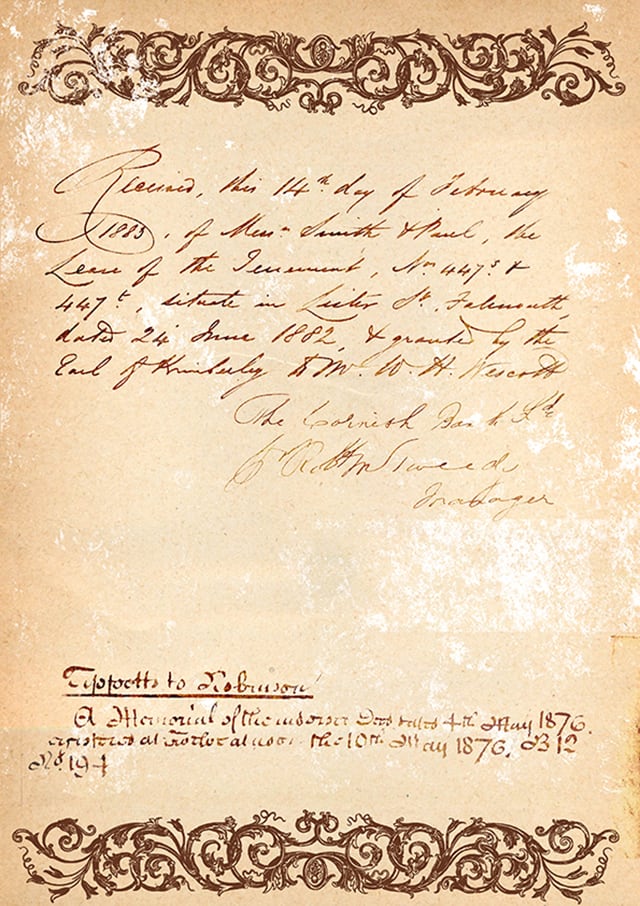 Received, this 14th day of February
1883, of Messrs Smith & Paul, the
Lease of the Tenement, Nos 447s &
447t, situate in Lister St. Falmouth,
dated 24 June 1882, & granted by the
Earl of Kimberley to Mr. W. H. Wescott
The Cornish Bank Ld
Tweedy
Manager
Tippetts to Robinson
A Memorial of the Deed dated 4th May 1876.
registered at the 10th May 1876, B 12
No. 194